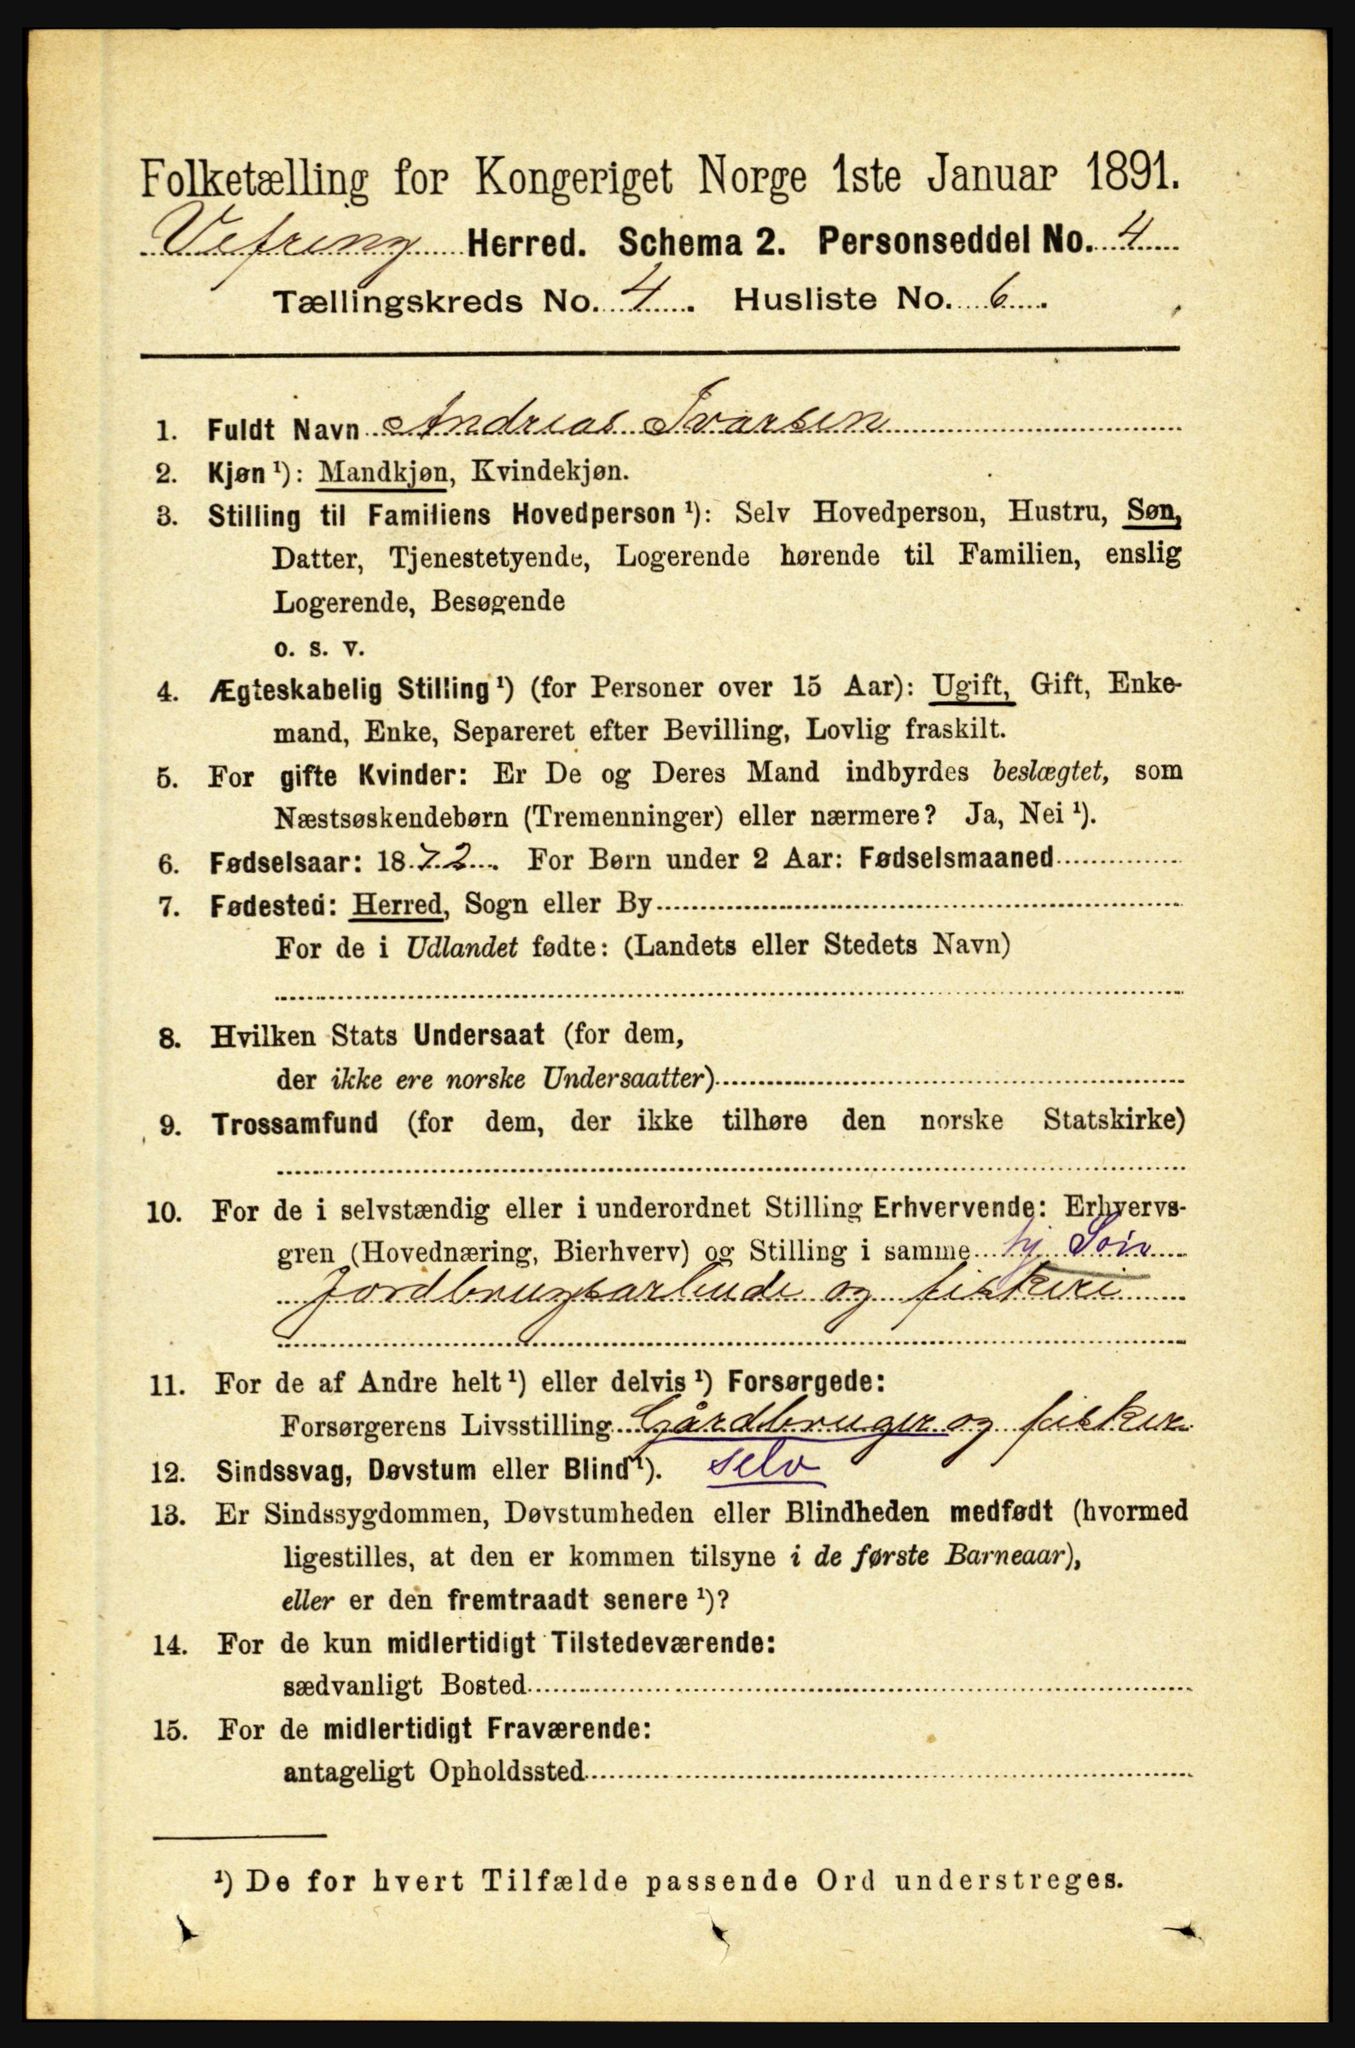 Folketælling for Kongeriget Norge 1ste Januar 1891.
Vefring Herred. Schema 2. Personseddel No. 4
Tællingskreds No. 4. Husliste No. 6.
1. Fuldt Navn Andreas Ivarsen
2. Kjøn ¹): Mandkjøn, Kvindekjøn.
3. Stilling til Familiens Hovedperson ¹): Selv Hovedperson, Hustru, Søn,
Datter, Tjenestetyende, Logerende hørende til Familien, enslig
Logerende, Besøgende
o. s. v.
4. Ægteskabelig Stilling ¹) (for Personer over 15 Aar): Ugift, Gift, Enke-
mand, Enke, Separeret efter Bevilling, Lovlig fraskilt.
5. For gifte Kvinder: Er De og Deres Mand indbyrdes beslægtet, som
Næstsøskendebørn (Tremenninger) eller nærmere? Ja, Nei ¹).
6. Fødselsaar: 1872. For Børn under 2 Aar: Fødselsmaaned
7. Fødested: Herred, Sogn eller By
For de i Udlandet fødte: (Landets eller Stedets Navn)
8. Hvilken Stats Undersaat (for dem,
der ikke ere norske Undersaatter)
9. Trossamfund (for dem, der ikke tilhøre den norske Statskirke)
10. For de i selvstændig eller i underordnet Stilling Erhvervende: Erhvervs-
gren (Hovednæring, Bierhverv) og Stilling i samme hj Søn
Jordbrugsarbeide og fiskeri
11. For de af Andre helt ¹) eller delvis ¹) Forsørgede:
Forsørgerens Livsstilling Gårdbruger og fisker
12. Sindssvag, Døvstum eller Blind ¹). selv
13. Er Sindssygdommen, Døvstumheden eller Blindheden medfødt (hvormed
ligestilles, at den er kommen tilsyne i de første Barneaar),
eller er den fremtraadt senere ¹)?
14. For de kun midlertidigt Tilstedeværende:
sædvanligt Bosted
15. For de midlertidigt Fraværende:
antageligt Opholdssted
¹) De for hvert Tilfælde passende Ord understreges.